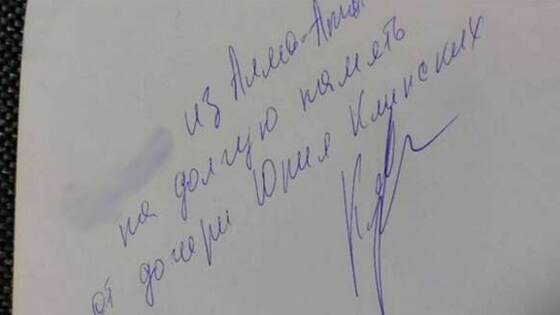 из Алма-Аты
на долгую память
от дочери Юрия Клинских